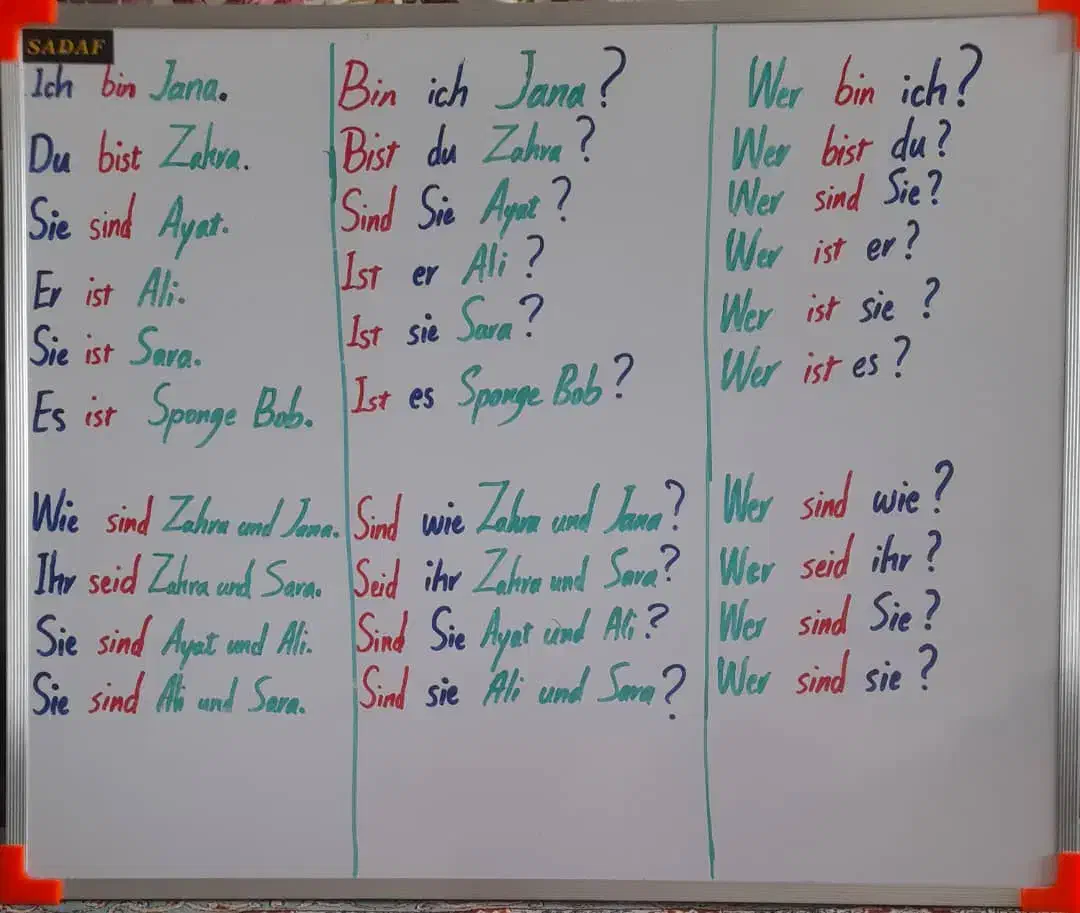 SADAF
Ich bin Jana.
Du bist Zahra.
Sie sind Ayat.
Er ist Ali.
Sie ist Sara.
Es ist Sponge Bob.
Wie sind Zahra und Jana.
Ihr seid Zahra und Sara.
Sie sind Ayat und Ali.
Sie sind Ali und Sara.
Bin ich Jana?
Bist du Zahra?
Sind Sie Ayat?
Ist er Ali?
Ist sie Sara?
Ist es Sponge Bob?
Sind wie Zahra und Jana?
Seid ihr Zahra und Sara?
Sind Sie Ayat und Ali?
Sind sie Ali und Sara?
Wer bin ich?
Wer bist du?
Wer sind Sie?
Wer ist er?
Wer ist sie?
Wer ist es?
Wer sind wie?
Wer seid ihr?
Wer sind Sie?
Wer sind sie?